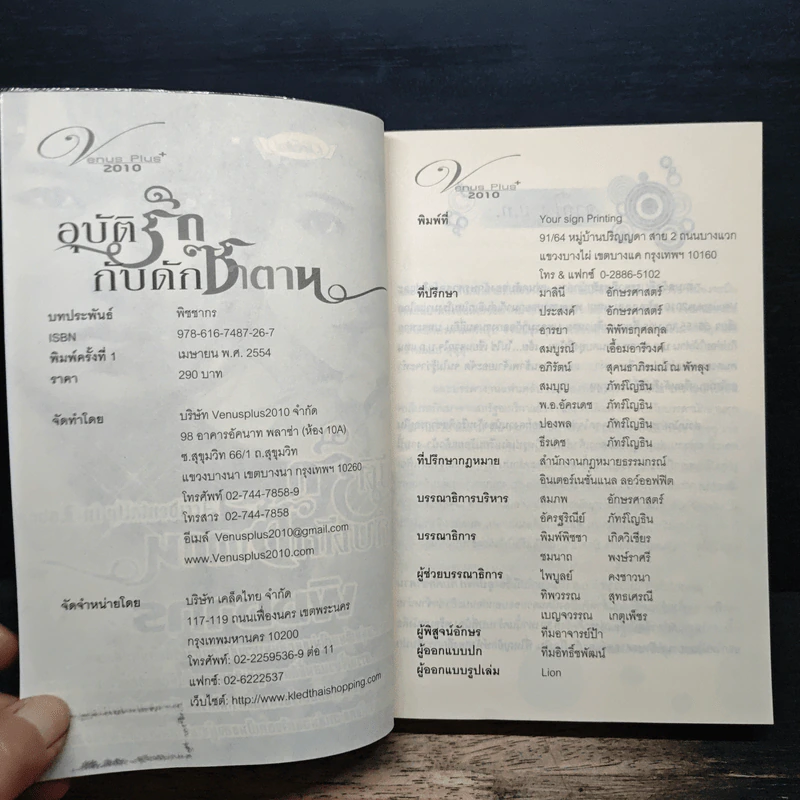 Venus Plus+
2010
อุบัติรัก
กับดักซาตาน
บทประพันธ์ พิชชากร
ISBN 978-616-7487-26-7
พิมพ์ครั้งที่ 1 เมษายน พ.ศ. 2554
ราคา 290 บาท
จัดทำโดย บริษัท Venusplus2010 จำกัด
98 อาคารอัคนาท พลาซ่า (ห้อง 10A)
ซ.สุขุมวิท 66/1 ถ.สุขุมวิท
แขวงบางนา เขตบางนา กรุงเทพฯ 10260
โทรศัพท์ 02-744-7858-9
โทรสาร 02-744-7858
อีเมล์ Venusplus2010@gmail.com
www.Venusplus2010.com
จัดจำหน่ายโดย บริษัท เคล็ดไทย จำกัด
117-119 ถนนเฟื่องนคร เขตพระนคร
กรุงเทพมหานคร 10200
โทรศัพท์: 02-2259536-9 ต่อ 11
แฟกซ์: 02-6222537
เว็บไซต์: http://www.kledthaishopping.com
Venus Plus+
2010
พิมพ์ที่ Your sign Printing
91/64 หมู่บ้านปริญญดา สาย 2 ถนนบางแวก
แขวงบางไผ่ เขตบางแค กรุงเทพฯ 10160
โทร & แฟกซ์ 0-2886-5102
ที่ปรึกษา มาลินี อักษรศาสตร์
ประสงค์ อักษรศาสตร์
อารยา พิพัทธกุศลกุล
สมบูรณ์ เอื้อมอารีวงศ์
อภิรัตน์ สุคนธาภิรมณ์ ณ พัทลุง
สมบุญ ภัทร์โญธิน
พ.อ.อัครเดช ภัทร์โญธิน
ปองพล ภัทร์โญธิน
ธีรเดช ภัทร์โญธิน
ที่ปรึกษากฎหมาย สำนักงานกฎหมายธรรมกรณ์
อินเตอร์เนชั่นแนล ลอว์ออฟฟิต
บรรณาธิการบริหาร สมภพ อักษรศาสตร์
อัครฐริณีย์ ภัทร์โญธิน
บรรณาธิการ พิมพ์พิชชา เกิดวิเชียร
ชมนาถ พงษ์ราศรี
ผู้ช่วยบรรณาธิการ ไพบูลย์ คงชาวนา
ทิพวรรณ สุทธเศรณี
เบญจวรรณ เกตุเพ็ชร
ผู้พิสูจน์อักษร ทีมอาจารย์ป้า
ผู้ออกแบบปก ทีมอิทธิ์ชพัฒน์
ผู้ออกแบบรูปเล่ม Lion